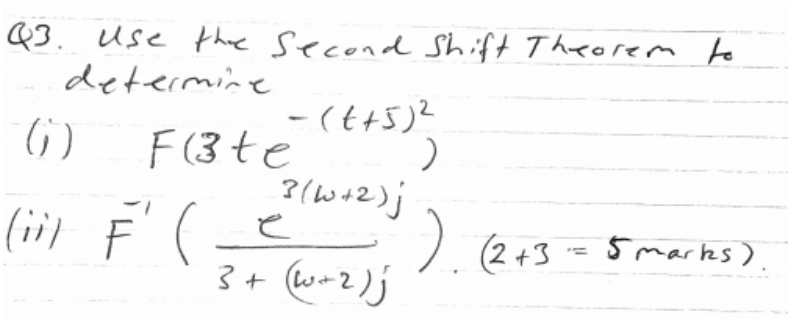 Q3. Use the Second Shift Theorem to
determine
(i) F(3te^{-(t+5)^2})
(ii) F^{-1}(\frac{e^{3(w+2)j}}{3+(w+2)j}). (2+3 = 5 marks).